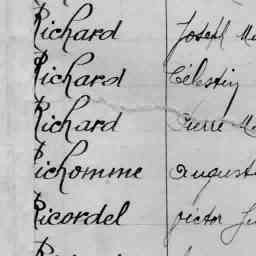 Richard Joseph
Richard Célestin
Richard Pierre
Richomme August
Ricordel victor